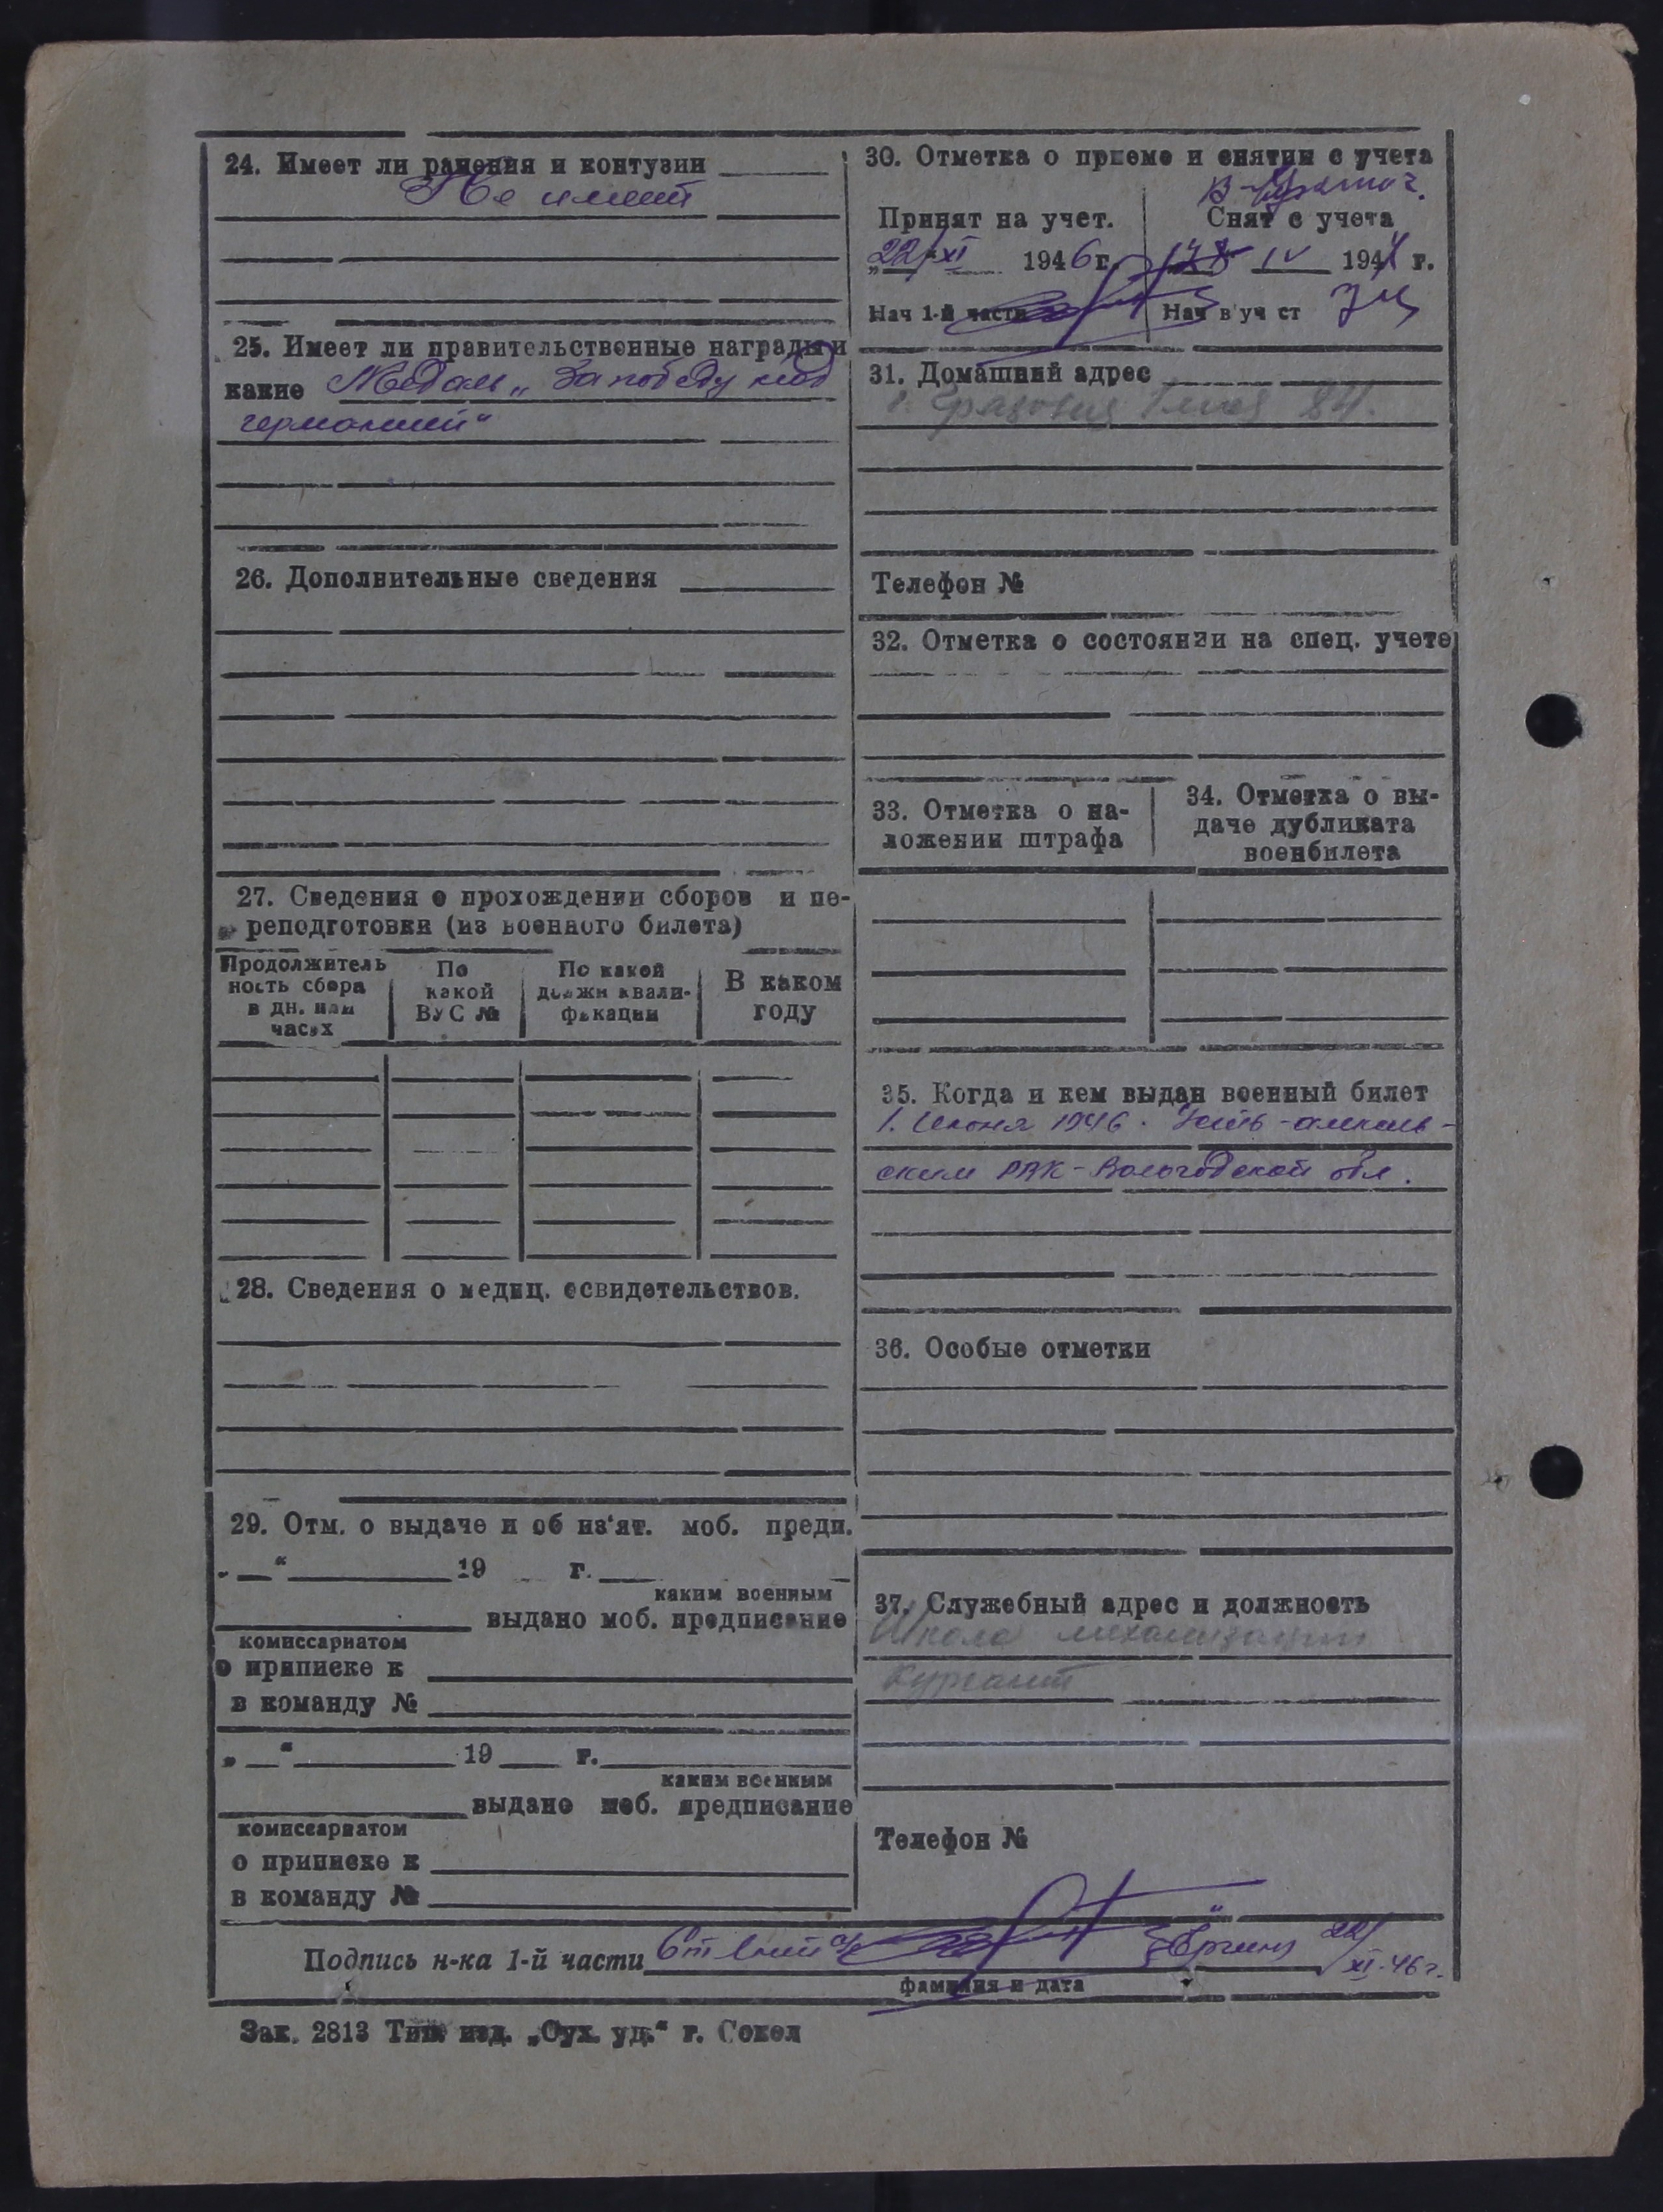 24. Имеет ли ранения и контузии
Не имеет
25. Имеет ли правительственные награды и
какие Медаль „За победу над
германией“
26. Дополнительные сведения
27. Сведения о прохождении сборов и пе-
реподготовки (из военного билета)
Продолжитель
ность сбора
в дн. или
часах
По
какой
ВУС №
По какой
должн квали-
фикации
В каком
году
28. Сведения о медиц. освидетельствов.
29. Отм. о выдаче и об из'ят. моб. предп.
„ “ 19 г.
каким военным
выдано моб. предписание
комиссариатом
о приписке к
в команду №
„ “ 19 г.
каким военным
выдано моб. предписание
комиссариатом
о приписке к
в команду №
30. Отметка о приеме и снятии с учета
Принят на учет.
„22/XI 1946 г.
Нач 1-й части
Снят с учета
IV 194 г.
Нач в'уч ст
31. Домашний адрес
84.
Телефон №
32. Отметка о состоянии на спец. учете
33. Отметка о на-
ложении штрафа
34. Отметка о вы-
даче дубликата
военбилета
35. Когда и кем выдан военный билет
1. Июня 1946.
ским РВК - Вологодской обл.
36. Особые отметки
37. Служебный адрес и должность
Школа механизации
Курсант
Телефон №
Подпись н-ка 1-й части Ст л-нт а/с 22/XI-46 г.
фамилия и дата
Зак. 2813 Тип. изд. „Сух. уд.“ г. Сокол